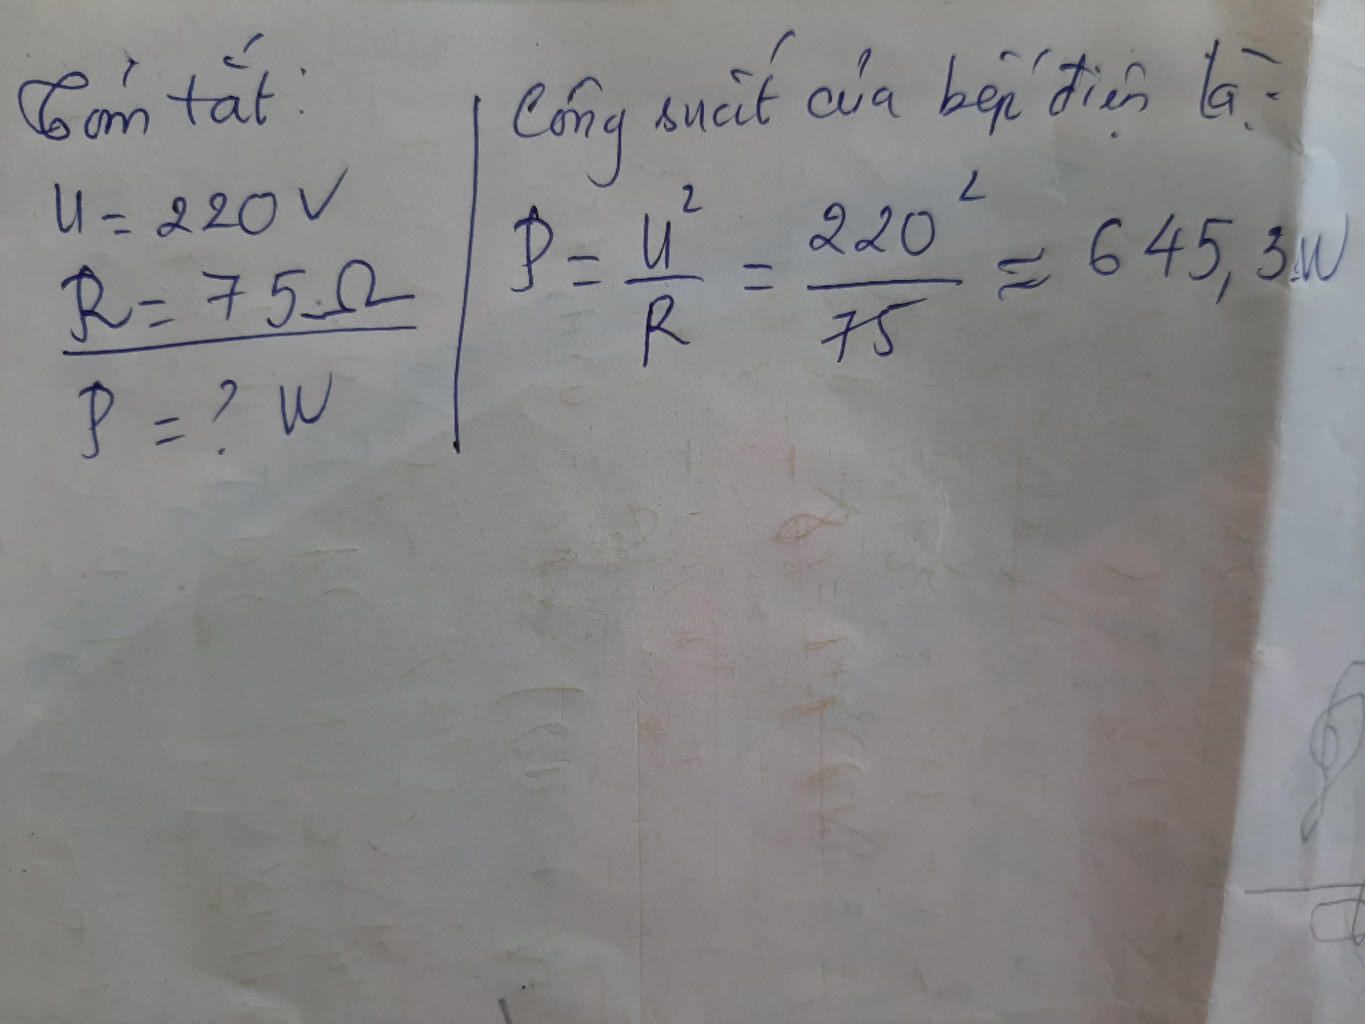 Tóm tắt:
U = 220V
R = 75Ω
P = ? W
Công suất của bếp điện là:
P = U²/R = 220²/75 ≈ 645,3W